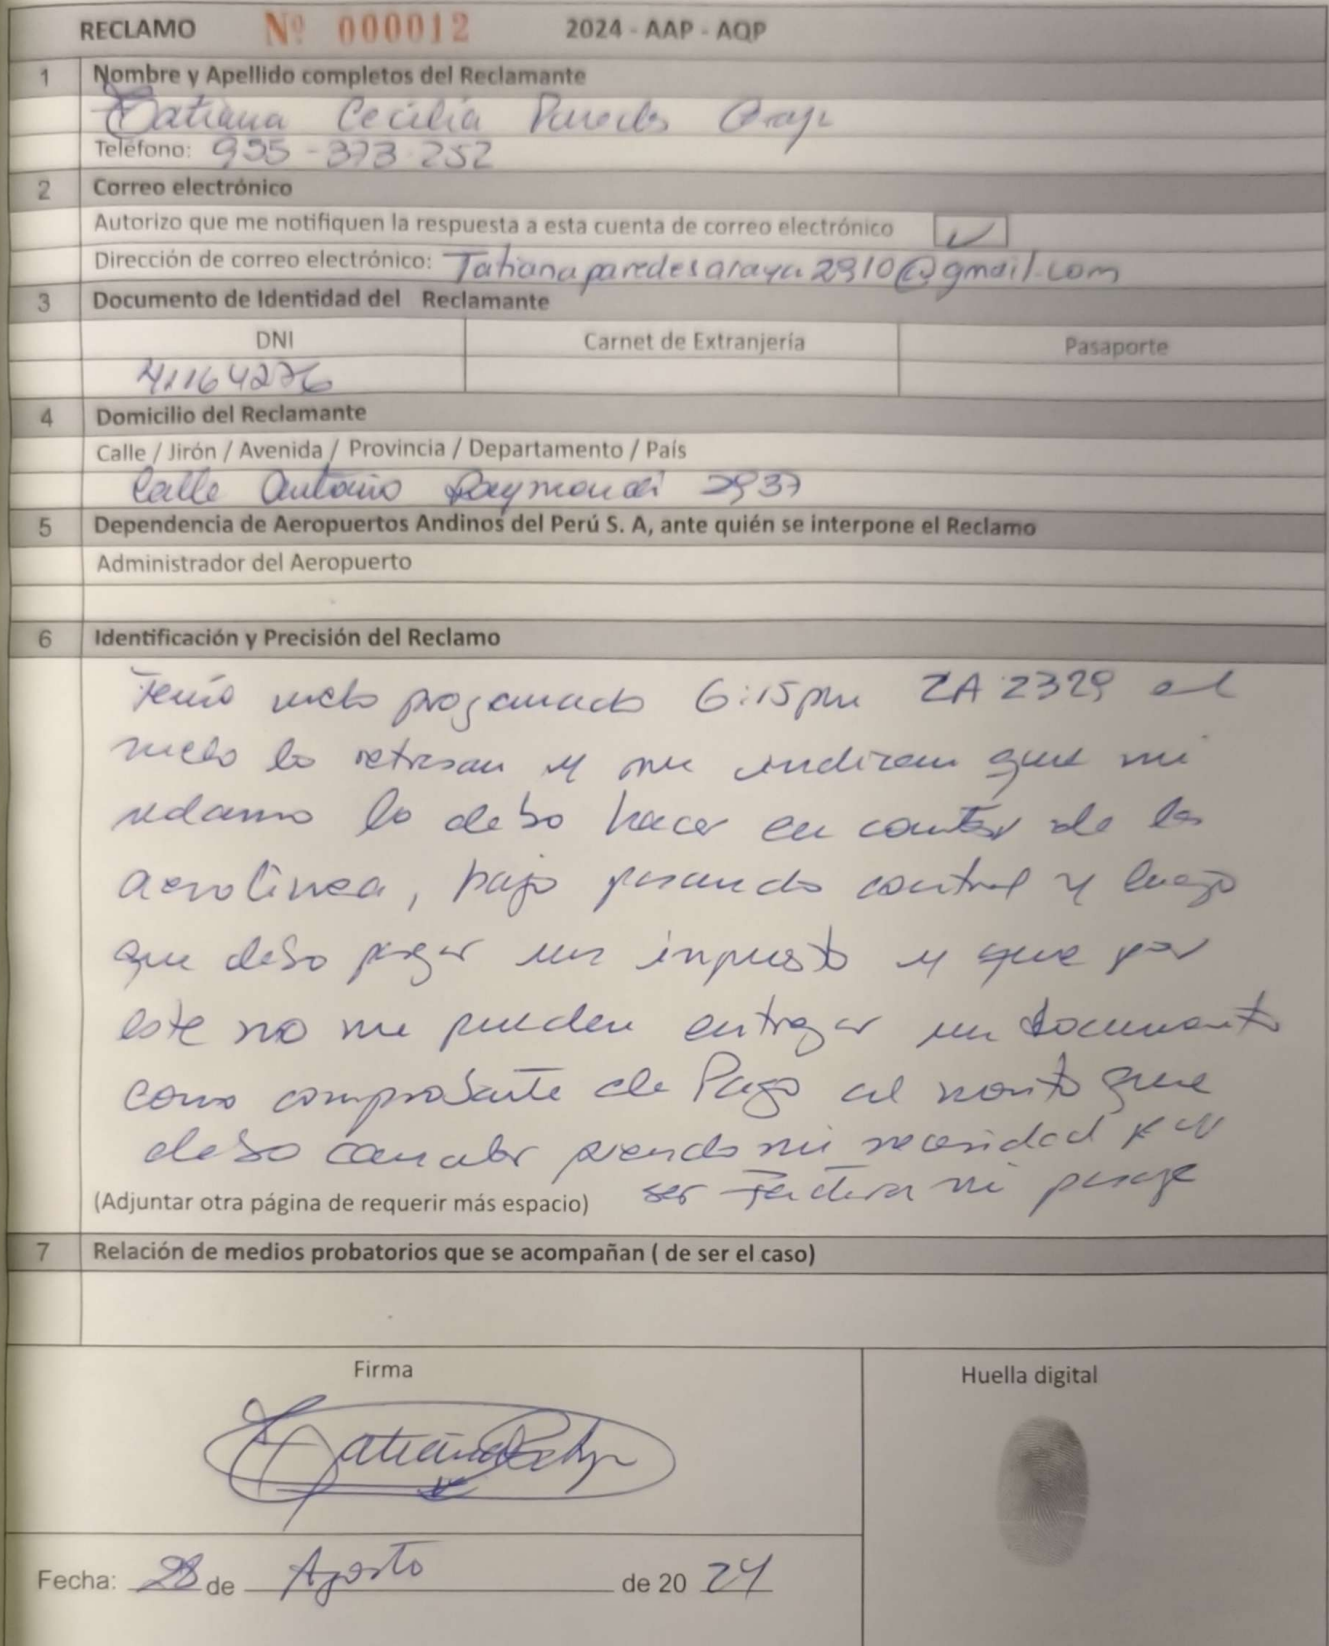 RECLAMO Nº 000012 2024 - AAP - AQP
1 Nombre y Apellido completos del Reclamante
Tatiana Cecilia Paredes Araya
Teléfono: 955-373-252
2 Correo electrónico
Autorizo que me notifiquen la respuesta a esta cuenta de correo electrónico ✓
Dirección de correo electrónico: Tatianaparedesaraya2910@gmail.com
3 Documento de Identidad del Reclamante
DNI Carnet de Extranjería Pasaporte
41164276
4 Domicilio del Reclamante
Calle / Jirón / Avenida / Provincia / Departamento / País
Calle Antonio Raymondi 2937
5 Dependencia de Aeropuertos Andinos del Perú S. A, ante quién se interpone el Reclamo
Administrador del Aeropuerto
6 Identificación y Precisión del Reclamo
Tenía vuelo programado 6:15pm 2329 el
vuelo lo retrasan y me indican que mi
reclamo lo debo hacer en counter de la
aerolínea, bajo pasando control y luego
que debo pagar un impuesto y que por
este no me pueden entregar un documento
como comprobante de Pago al monto que
debo cancelar siendo mi necesidad
(Adjuntar otra página de requerir más espacio) ser mi pasaje
7 Relación de medios probatorios que se acompañan ( de ser el caso)
Firma Huella digital
Tatiana
Fecha: 28 de Agosto de 20 24